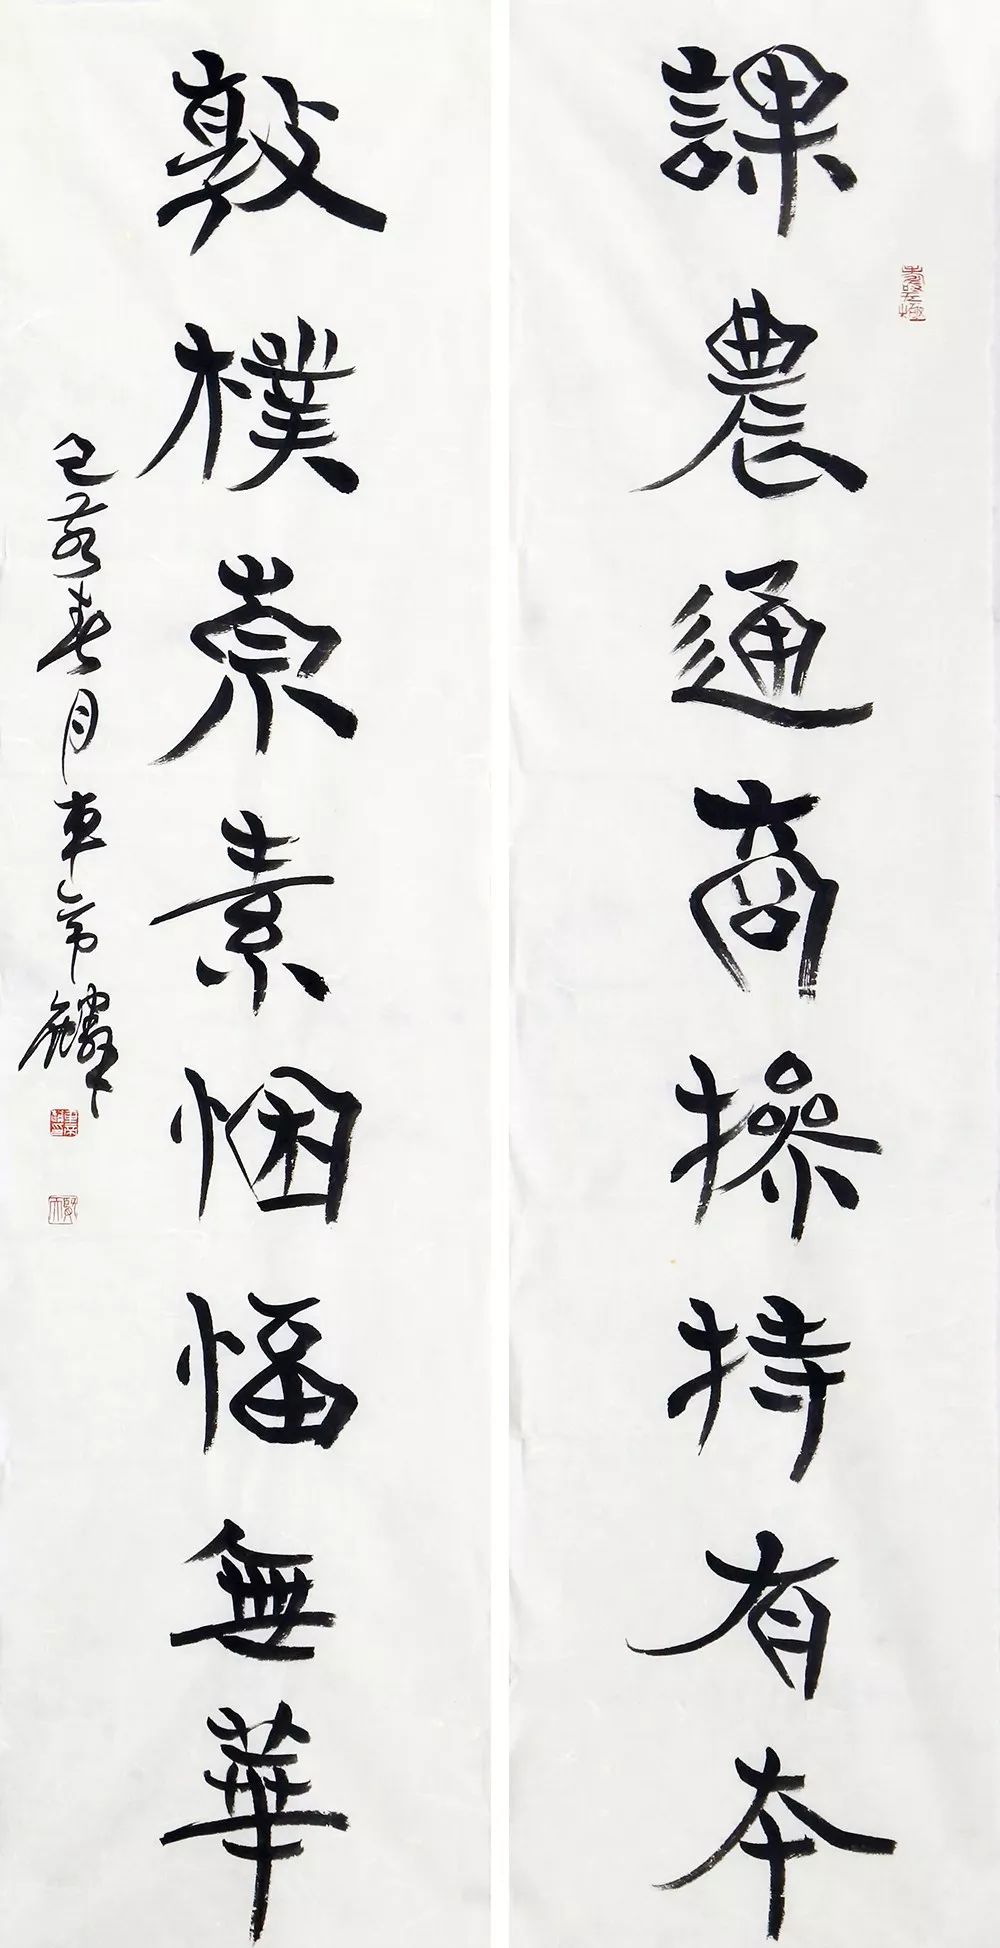 課農通商操持有本
敦樸崇素悃愊無華
己亥春月車帝麟